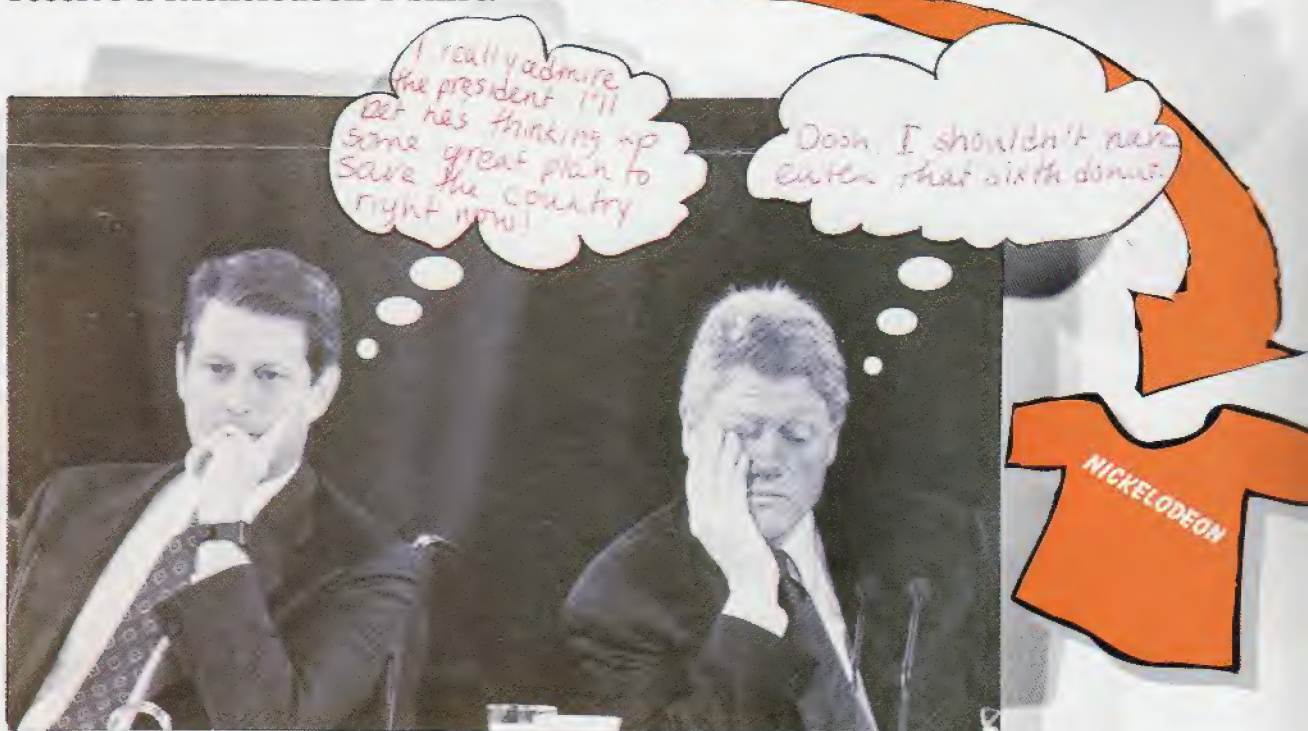 receive a Nickelodeon T-shirt.
I really admire
the president I'll
bet hes thinking up
some great plan to
save the country
right now!
Oosh. I shouldn't have
eaten that sixth donut.
NICKELODEON